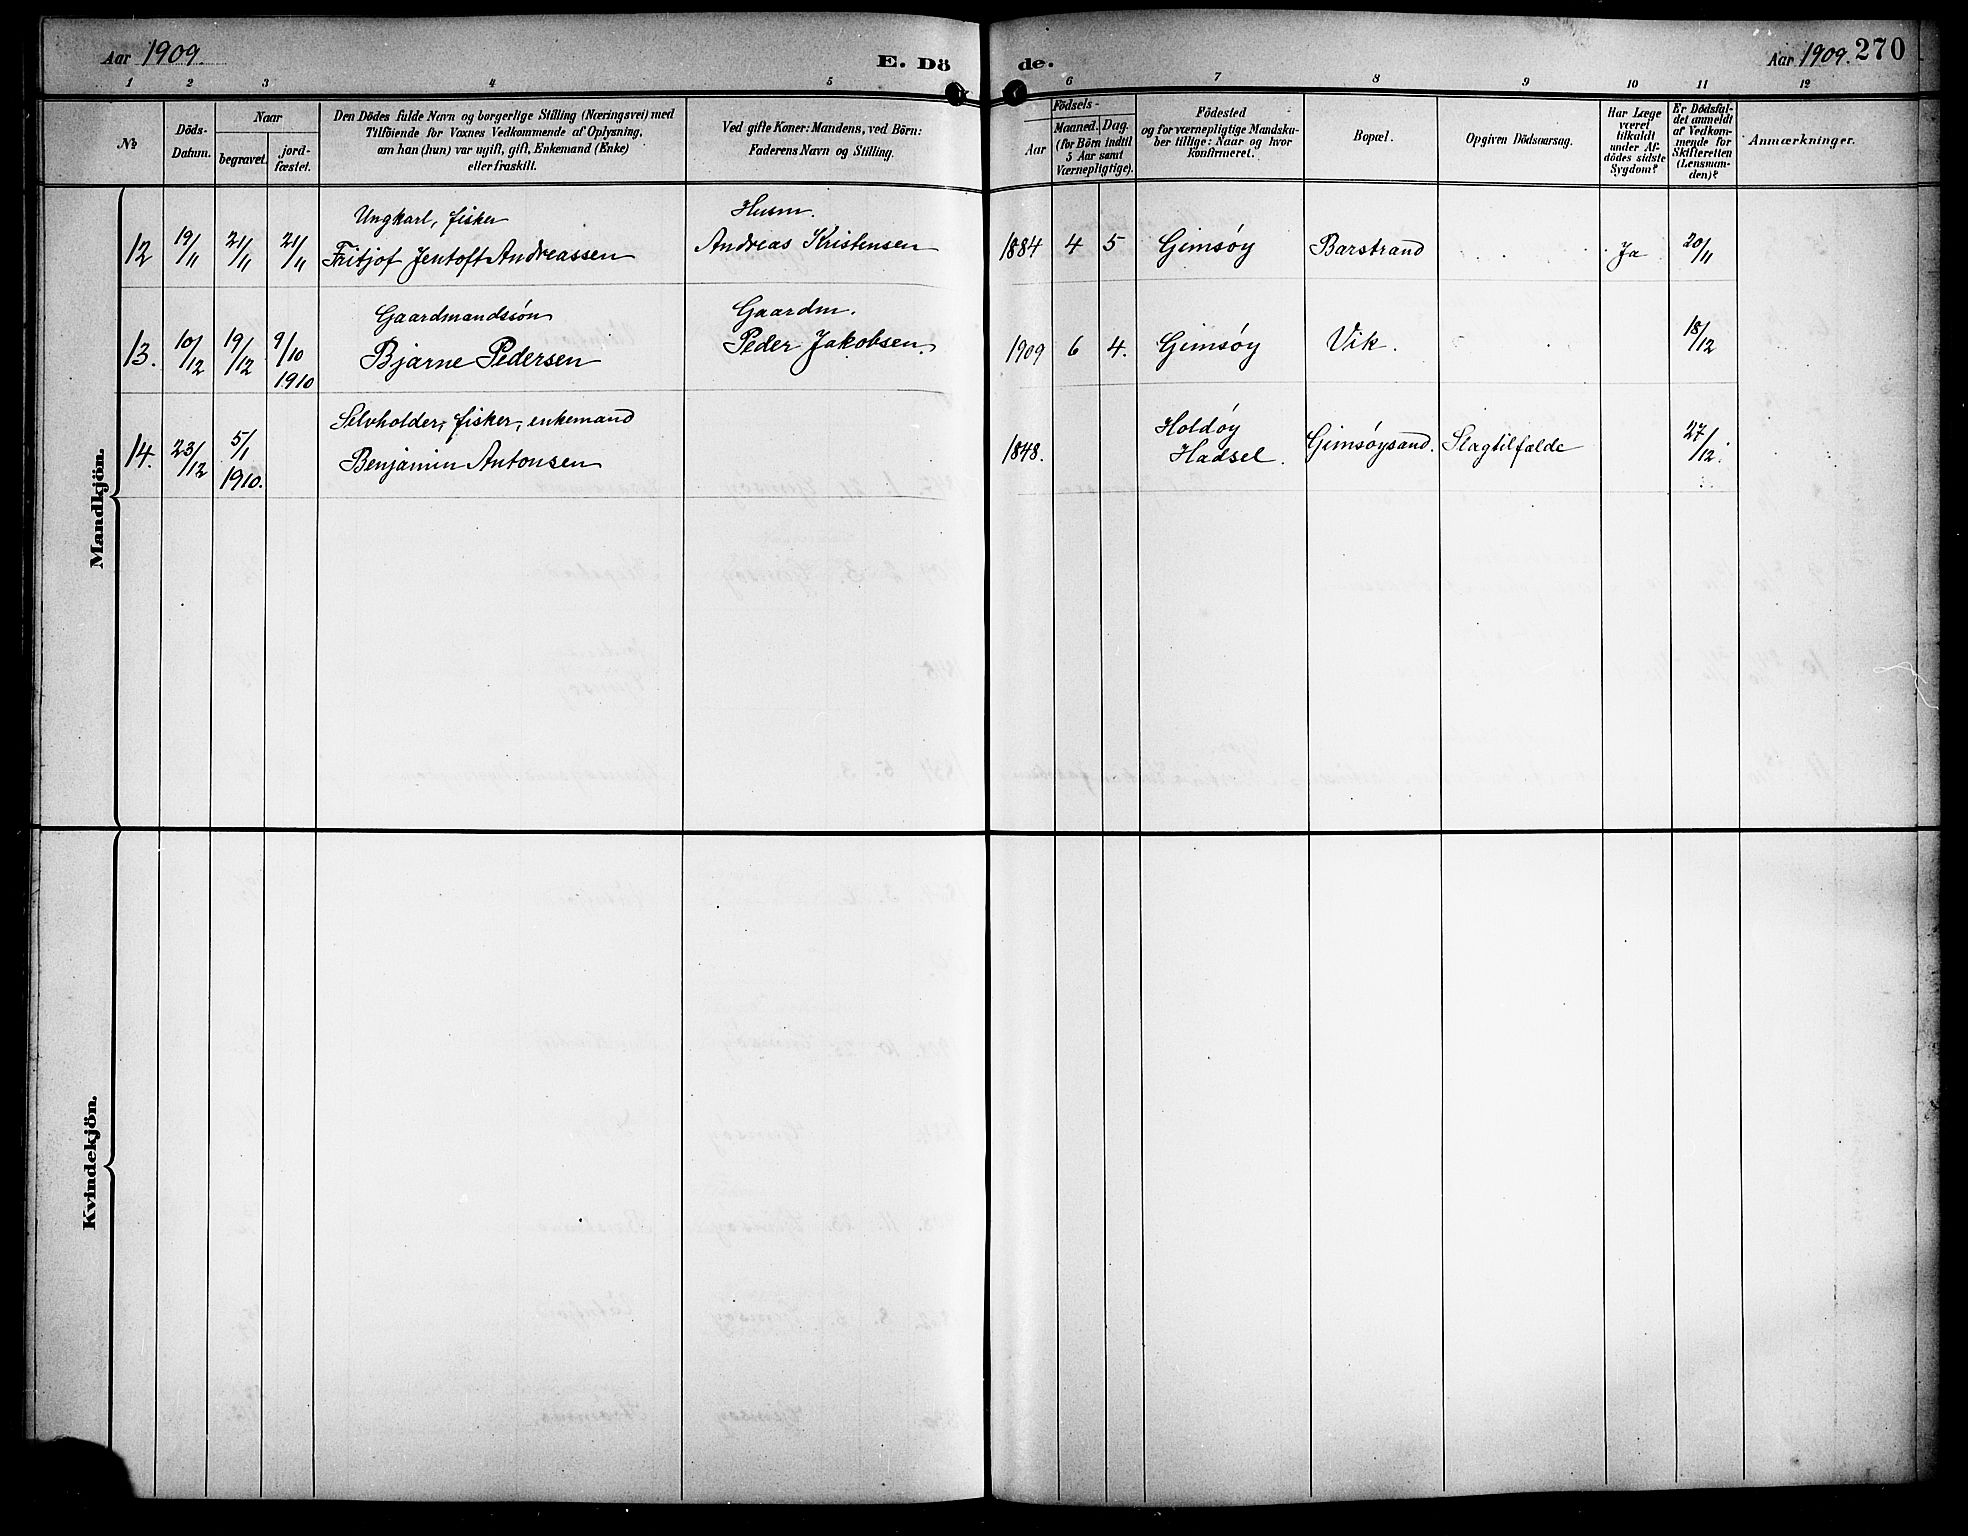 Aar 1909.
E. Dö
de.
Aar 1909. 270
1 2 3 4 5 6 7 8 9 10 11 12
No
Döds-
Datum.
Naar
begravet.
jord-
fæstet.
Den Dödes fulde Navn og borgerlige Stilling (Næringsvei) med
Tilföiende for Voxnes Vedkommende af Oplysning,
om han (hun) var ugift, gift, Enkemand (Enke)
eller fraskilt.
Ved gifte Koner: Mandens, ved Börn:
Faderens Navn og Stilling.
Födsels-
Aar
Maaned.
Dag.
(for Börn indtil
5 Aar samt
Værnepligtige).
Födested
og for værnepligtige Mandsku-
ber tillige: Naar og hvor
konfirmeret.
Bopæl.
Opgiven Dödsaarsag.
Har Læge
været
tilkaldt
under Af-
dödes sidste
Sygdom?
Er Dödsfal-
det anmeldt
af Vedkom-
mende for
Skifteretten
(Lensman-
den)?
Anmærkninger.
Mandkjön.
Ungkarl, fisker
Husm.
12 19/11 21/11 21/11 Fritjof Jentoft Andreassen Andreas Kristensen 1884 4 5 Gimsøy Barstrand Ja 20/11
Gaardmandssön
Gaardm.
13. 10/12 19/12 9/10 Bjarne Pedersen Peder Jakobsen. 1909 6 4. Gimsøy Vik. 18/12
1910
Selvholder, fisker, enkemand
Holdøy
14. 23/12 5/1 Benjamin Antonsen 1848. Hadsel. Gimsøysand. Slagtilfælde 27/12.
1910.
Kvindekjön.